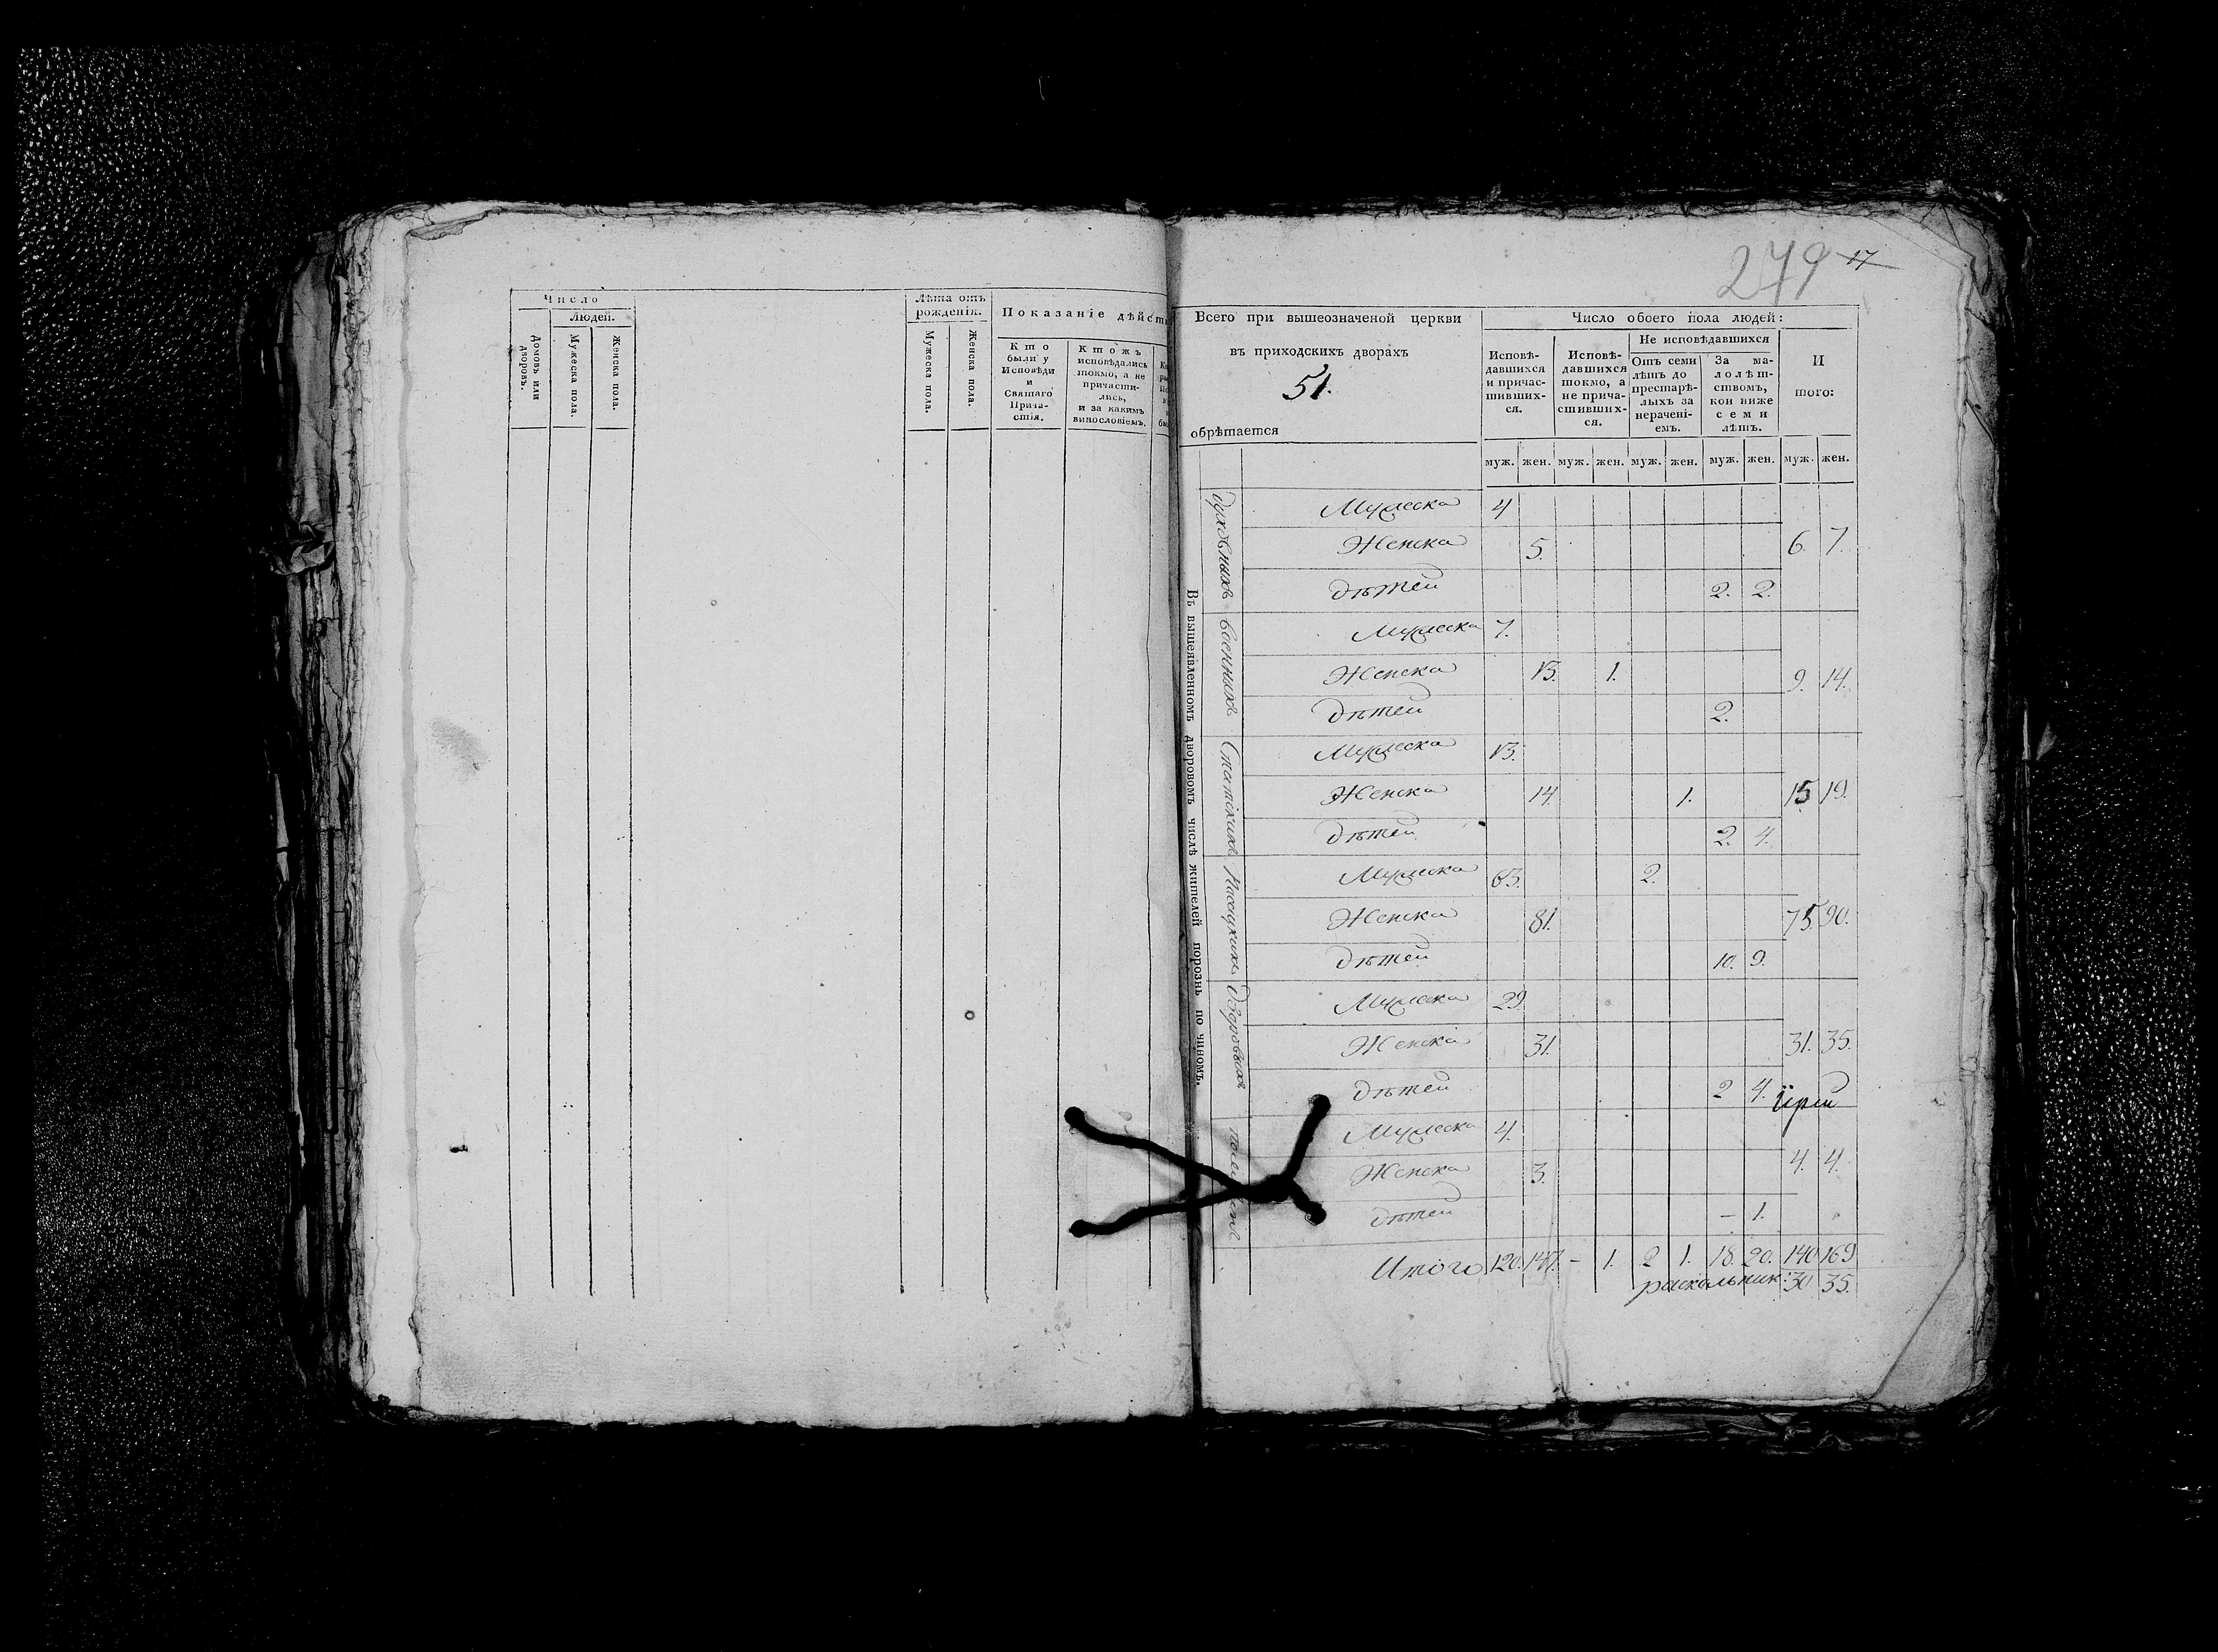 Число
Людей.
Домовъ или дворовъ.
Мужеска пола.
Женска пола.
Лѣта отъ рожденія.
Мужеска пола.
Женска пола.
Показаніе дѣйст
Кто были у Исповѣди и Святаго Прича-стія.
Ктожъ исповѣдались токмо, а не причасти-лись, и за какимъ винословіемъ.
279 17
Всего при вышеозначеной церкви
въ приходскихъ дворахъ
51.
обрѣтается
Число обоего пола людей:
Исповѣ-давшихся и причас-тившихся.
Исповѣ-давшихся токмо, а не прича-стивших-ся.
Не исповѣдавшихся
Отъ семи лѣтъ до престарѣ-лыхъ за нерачені-емъ.
За ма-лолѣт-ствомъ, кои ниже семи лѣтъ.
И того:
муж. жен. муж. жен. муж. жен. муж. жен. муж. жен.
Въ вышеявленномъ дворовомъ числѣ жителей порознь по чиномъ.
духовныхъ
Мужеска 4
Женска 5. 6. 7.
дѣтей 2. 2.
военныхъ
Мужеска 7.
Женска 13. 1. 9. 14.
дѣтей 2.
Статскихъ
Мужеска 13.
Женска 14. 1. 15 19.
дѣтей 2. 4.
Мужеска 63. 2.
Женска 81. 75 90.
дѣтей 10. 9.
дворовыхъ
Мужеска 29.
Женска 31. 31. 35.
дѣтей 2 4.
Мужеска 4.
Женска 3. 4. 4.
дѣтей – 1.
Итого 120. 147. – 1. 2 1. 18. 20. 140 169
раскольник: 30 35.